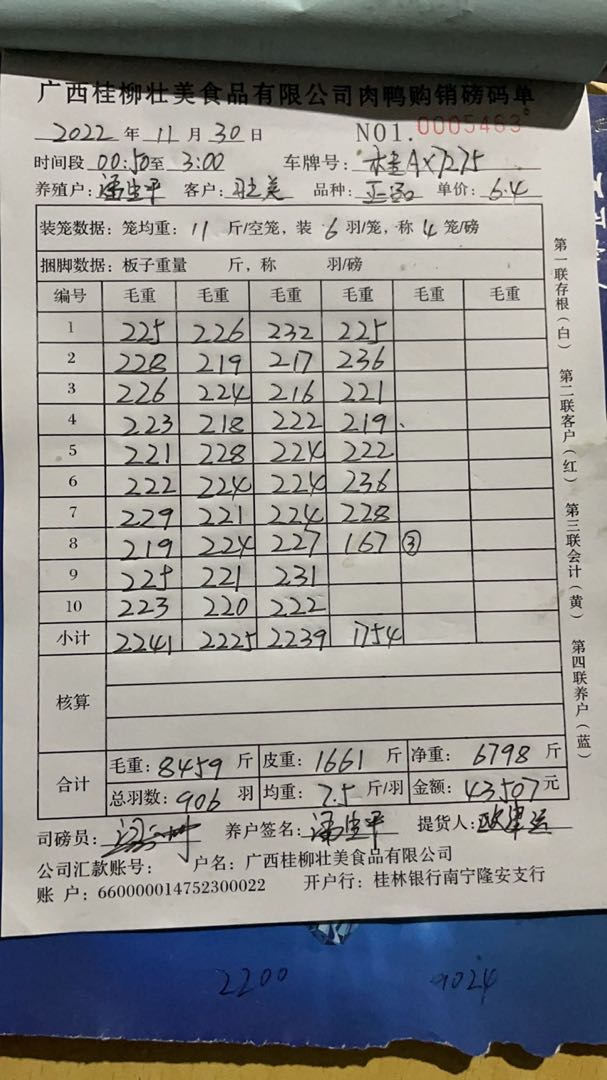 广西桂柳壮美食品有限公司肉鸭购销磅码单
2022 年 11 月 30 日 NO1. 0005463
时间段 00:50至 3:00 车牌号: 桂AX7275
养殖户: 客户: 壮美 品种: 单价: 6.4
装笼数据: 笼均重: 11 斤/空笼, 装 6 羽/笼, 称 4 笼/磅
捆脚数据: 板子重量 斤, 称 羽/磅
编号 毛重 毛重 毛重 毛重 毛重 毛重
1 225 226 232 225
2 228 219 217 236
3 226 224 216 221
4 223 218 222 219
5 221 228 224 222
6 222 224 224 236
7 229 221 224 228
8 219 224 227 167 ③
9 225 221 231
10 223 220 222
小计 2241 2225 2239 1754
核算
合计 毛重: 8459 斤 皮重: 1661 斤 净重: 6798 斤
总羽数: 906 羽 均重: 7.5 斤/羽 金额: 43507 元
司磅员: 养户签名: 提货人:
公司汇款账号: 户名: 广西桂柳壮美食品有限公司
账 户: 660000014752300022 开户行: 桂林银行南宁隆安支行
第一联存根(白) 第二联客户(红) 第三联会计(黄) 第四联养户(蓝)
2200 9024